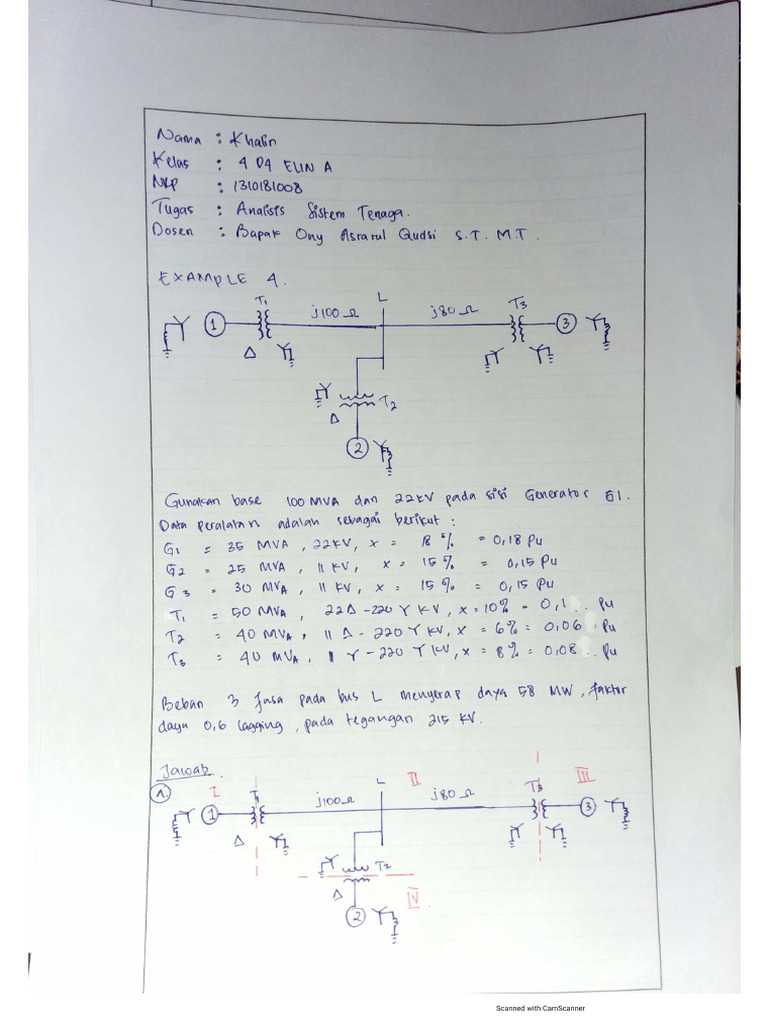 Nama : Khalin
Kelas : 4 D4 ELIN A
NRP : 1310181008
Tugas : Analisis Sistem Tenaga.
Dosen : Bapak Ony Asrarul Qudsi S.T. M.T.
EXAMPLE 4.
T1 L T3
j100 Ω j80 Ω
1 3
Δ
T2
Δ
2
Gunakan base 100 MVA dan 22 KV pada sisi Generator G1.
Data peralatan adalah sebagai berikut :
G1 = 35 MVA, 22KV, x = 18 % = 0,18 Pu
G2 = 25 MVA, 11 KV, x = 15 % = 0,15 Pu
G3 = 30 MVA, 11 KV, x = 15 % = 0,15 Pu
T1 = 50 MVA, 22Δ - 220 Y KV, x = 10% = 0,1 Pu
T2 = 40 MVA, 11 Δ - 220 Y KV, x = 6% = 0,06 Pu
T3 = 40 MVA, 11 Y - 220 Y KV, x = 8% = 0,08 Pu
Beban 3 fasa pada bus L menyerap daya 58 MW, faktor
daya 0,6 lagging, pada tegangan 215 KV.
Jawab.
A.
I T1 L II T3 III
j100Ω j80 Ω
1 3
Δ
T2
Δ IV
2
Scanned with CamScanner